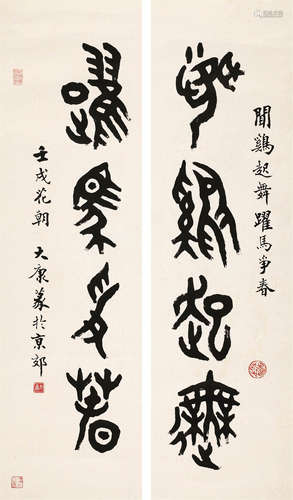 聞鷄起舞
聞鷄起舞躍馬爭春
躍馬爭春
壬戌花朝 大康篆於京郊